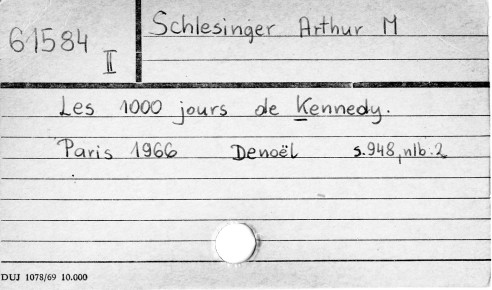 61584 II
Schlesinger Arthur M
Les 1000 jours de Kennedy.
Paris 1966 Denoël s.948, nlb.2
DUJ 1078/69 10.000